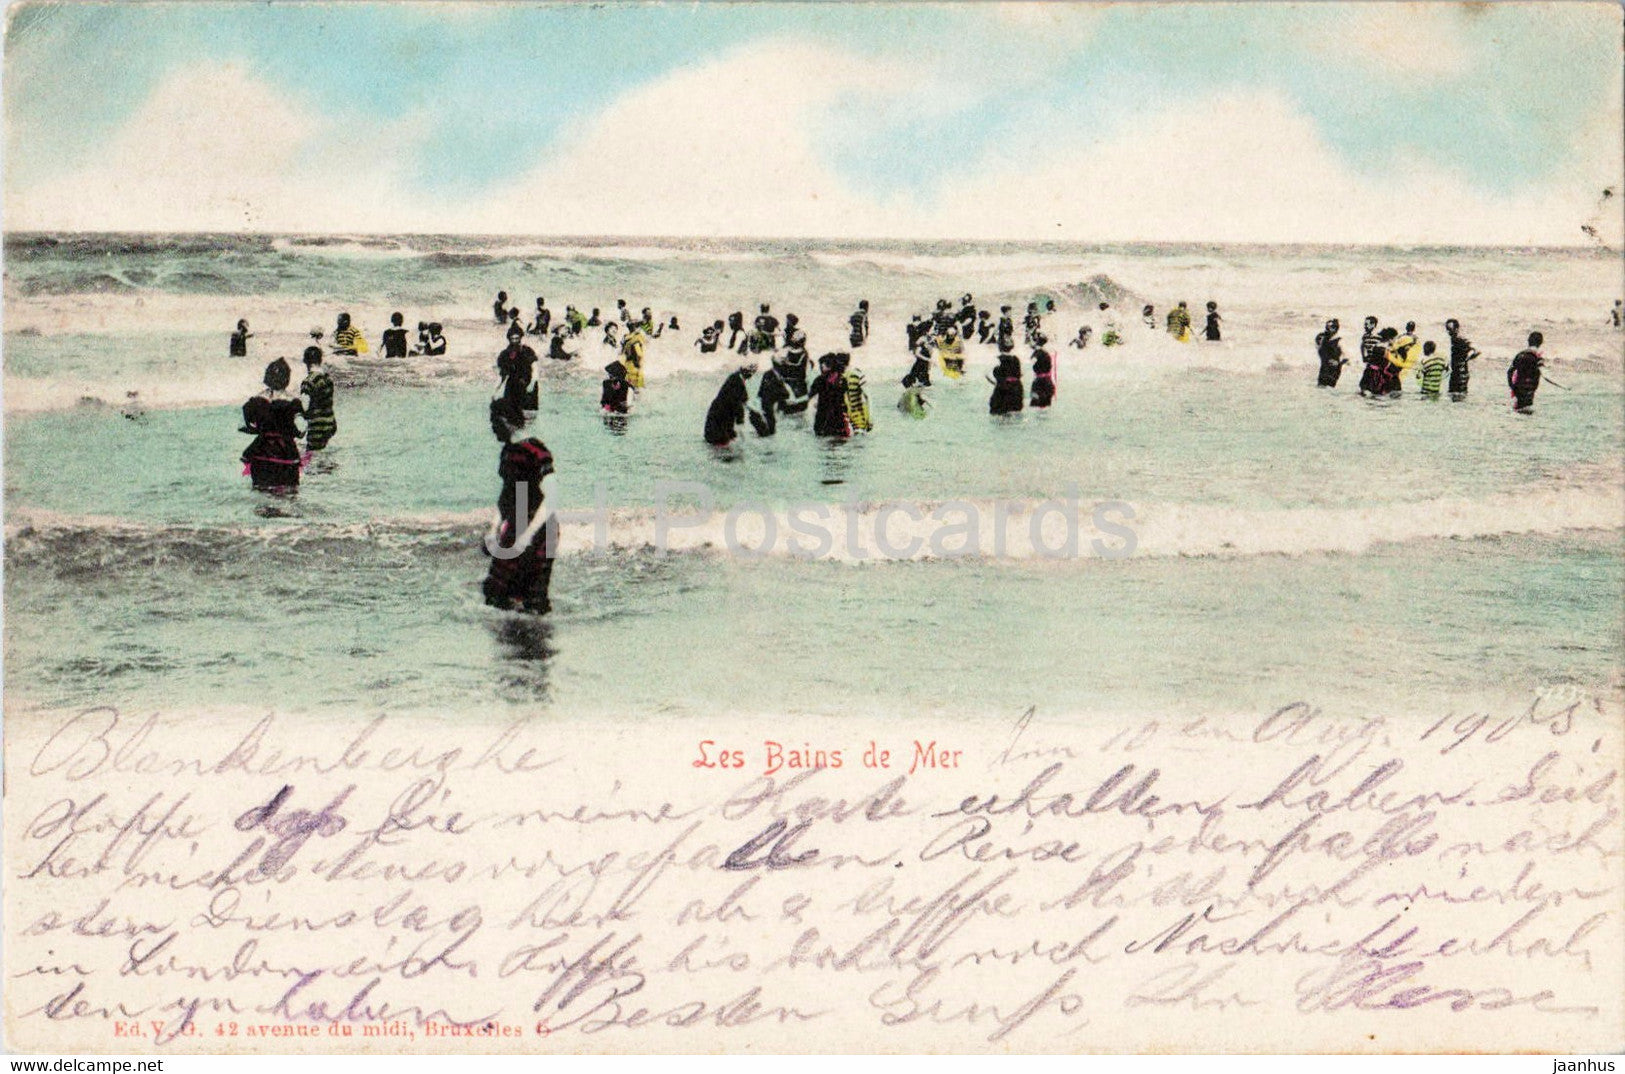 JH Postcards
Blankenberghe
Les Bains de Mer
10 en Aug. 1905.
Hoffe daß Sie meine Karte erhalten haben. Seit
her nichts Neues vorgefallen. Reise jedenfalls nach
sten Dienstag hier ab & treffe Mittwoch wieder
in London ein. Hoffe bis dahin noch Nachricht erhal
ten zu haben. Besten Gruß, Ihr
Ed. V. G. 42 avenue du midi, Bruxelles 6
delcampe.net
jaanhus